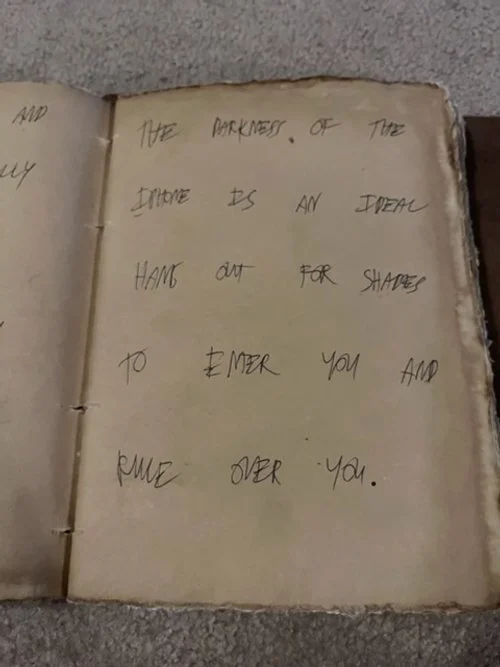 AND
THE DARKNESS OF THE
IPHONE IS AN IDEAL
HANG OUT FOR SHADES
TO ENTER YOU AND
RULE OVER YOU.